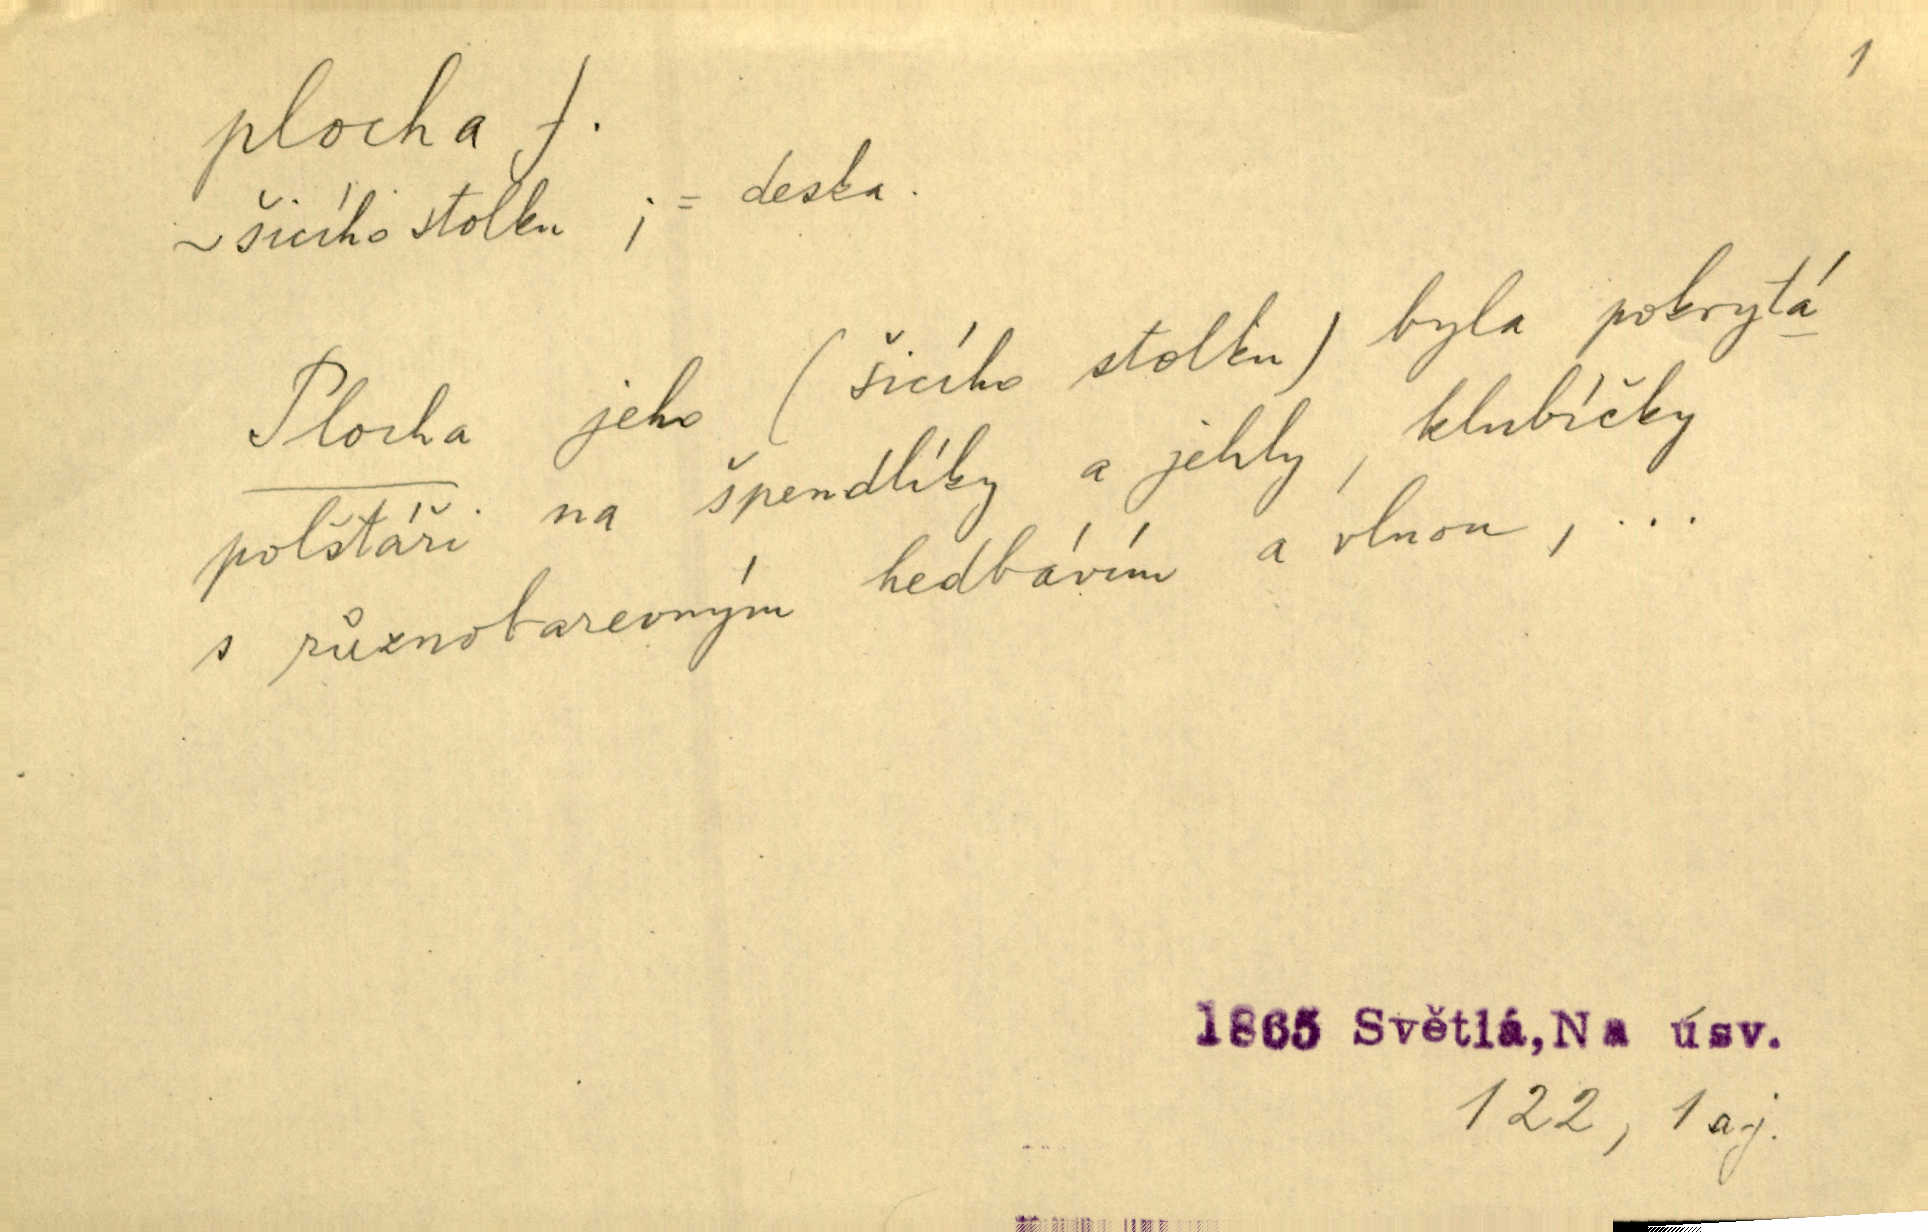 1
plocha f.
~ šicího stolku ; = deska.
Plocha jeho (šicího stolku) byla pokrytá
polštáři na špendlíky a jehly, klubíčky
s různobarevným hedbávím a vlnou, ...
1865 Světlá, Na úsv.
122, 1 aj.